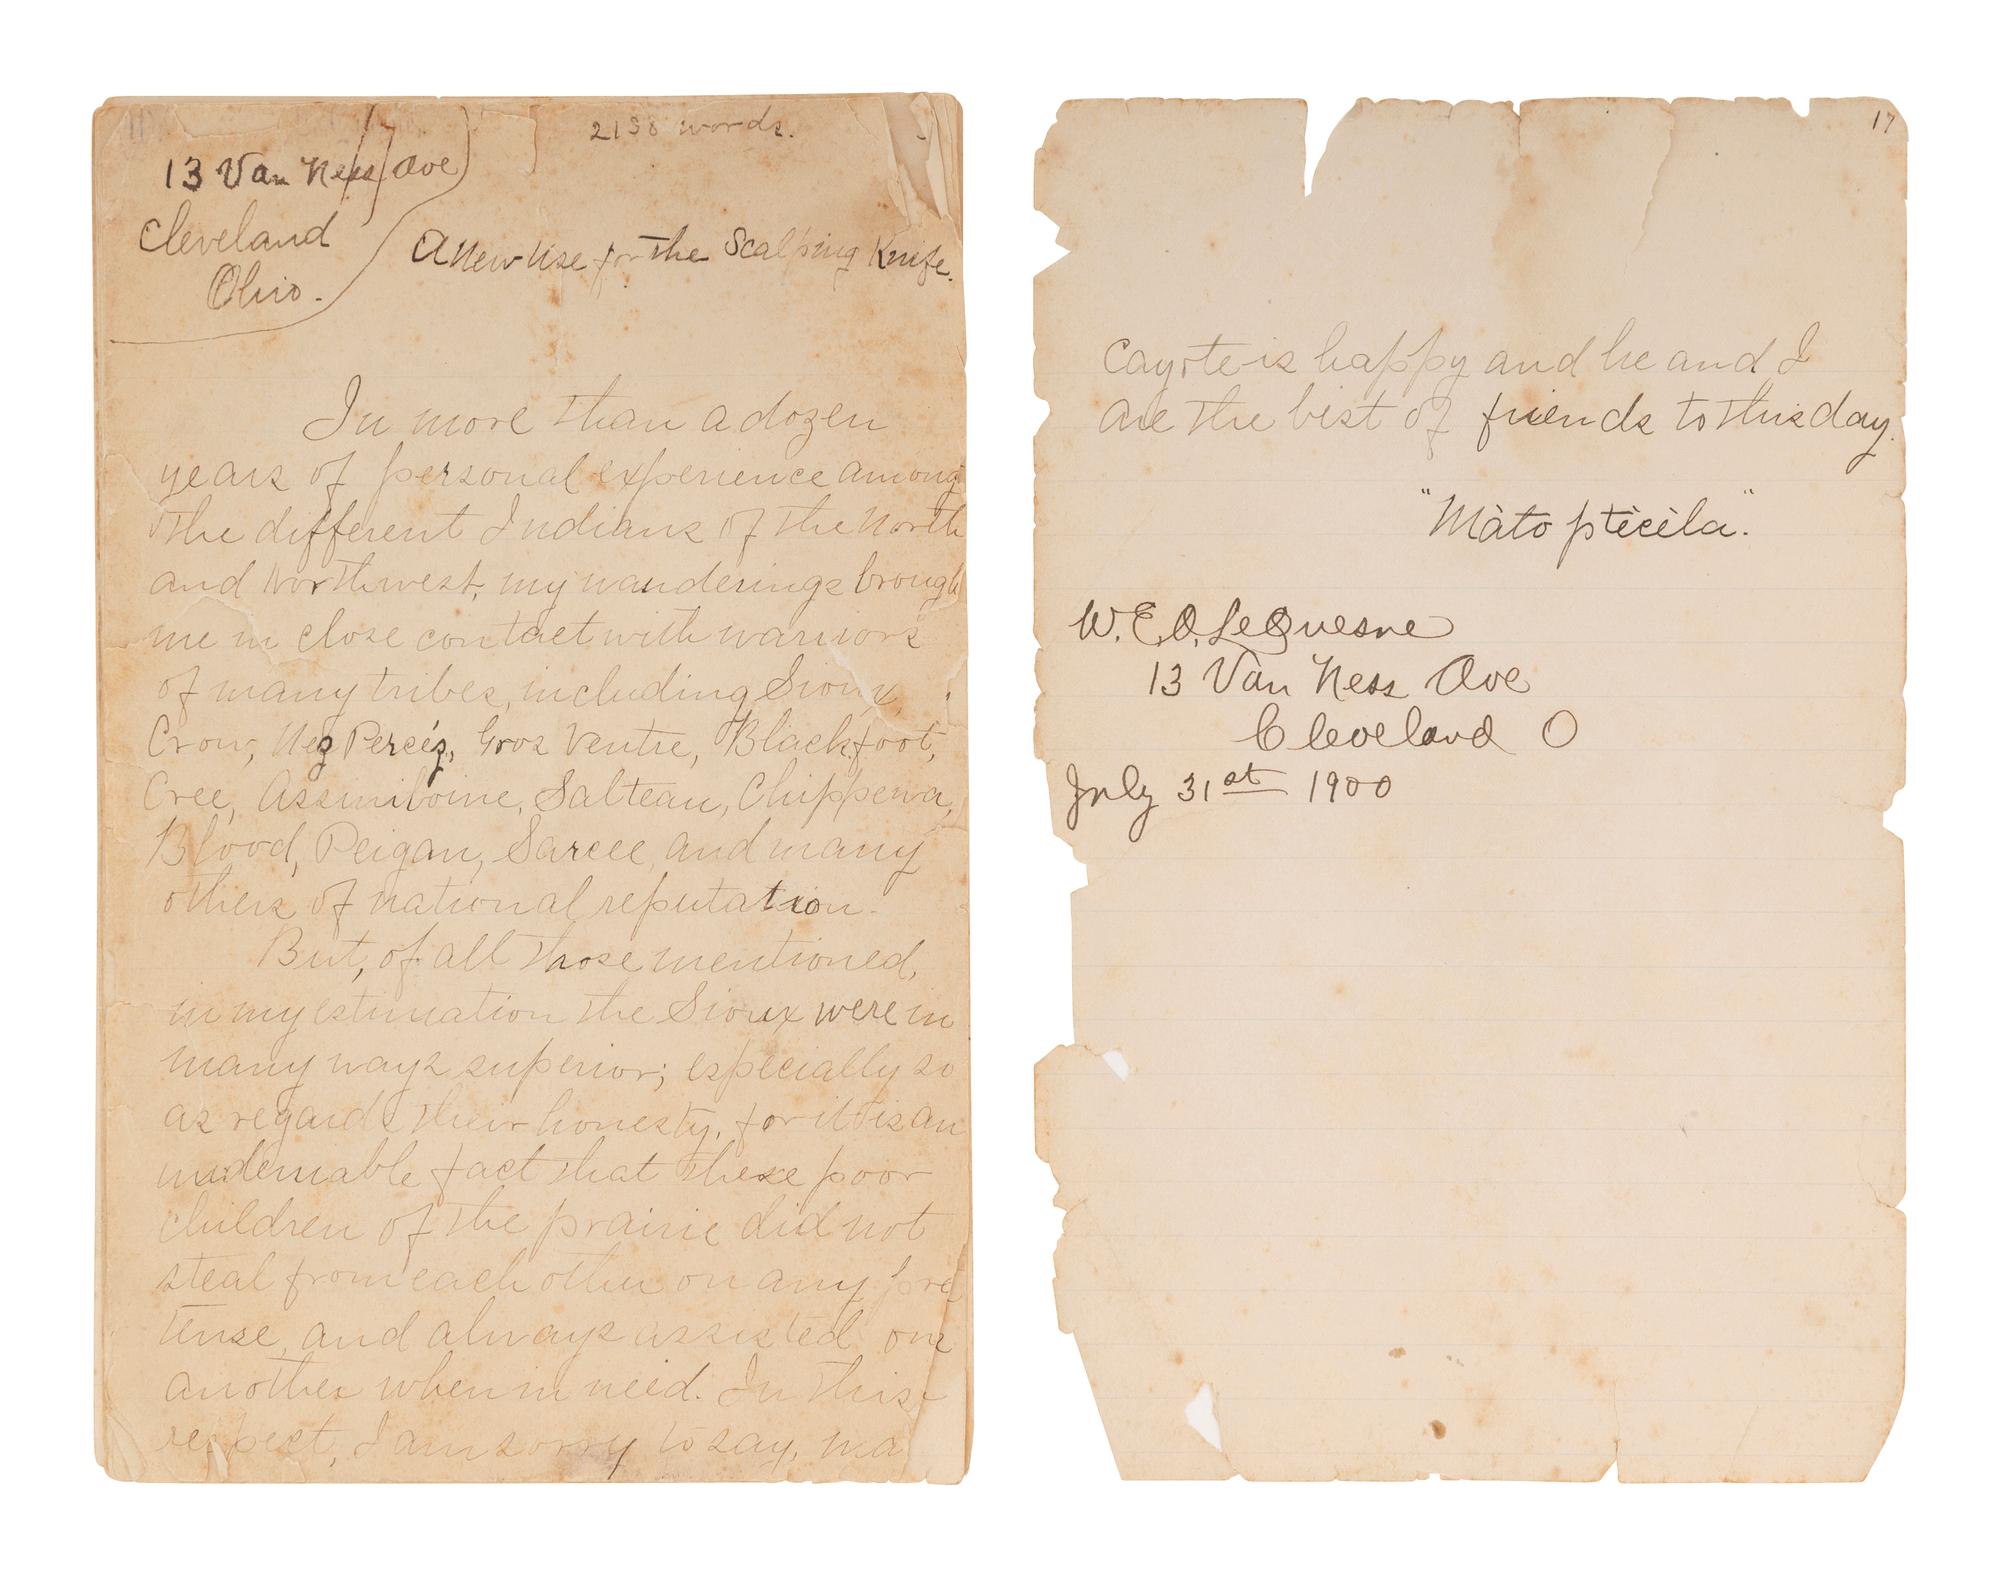 2138 words.
13 Van Ness Ave
Cleveland
Ohio.
A New Use for the Scalping Knife.
In more than a dozen
years of personal experience among
the different Indians of the North
and Northwest, my wanderings brough
me in close contact with warriors
of many tribes, including Sioux,
Crow, Nez Percéz, Gros Ventre, Blackfoot,
Cree, Assiniboine, Salteau, Chippewa,
Blood, Peigan, Sarcee, and many
others of national reputation.
But, of all those mentioned,
in my estimation the Sioux were in
many ways superior; especially so
as regards their honesty, for it is an
undeniable fact that these poor
children of the prairie did not
steal from each other on any pre
tense, and always assisted one
another when in need. In this
respect, I am sorry to say, ma
17
Cayote is happy and he and I
are the best of friends to this day.
"Màto ptècèla".
W.E.O. LeQuesne
13 Van Ness Ave
Cleveland O
July 31st 1900